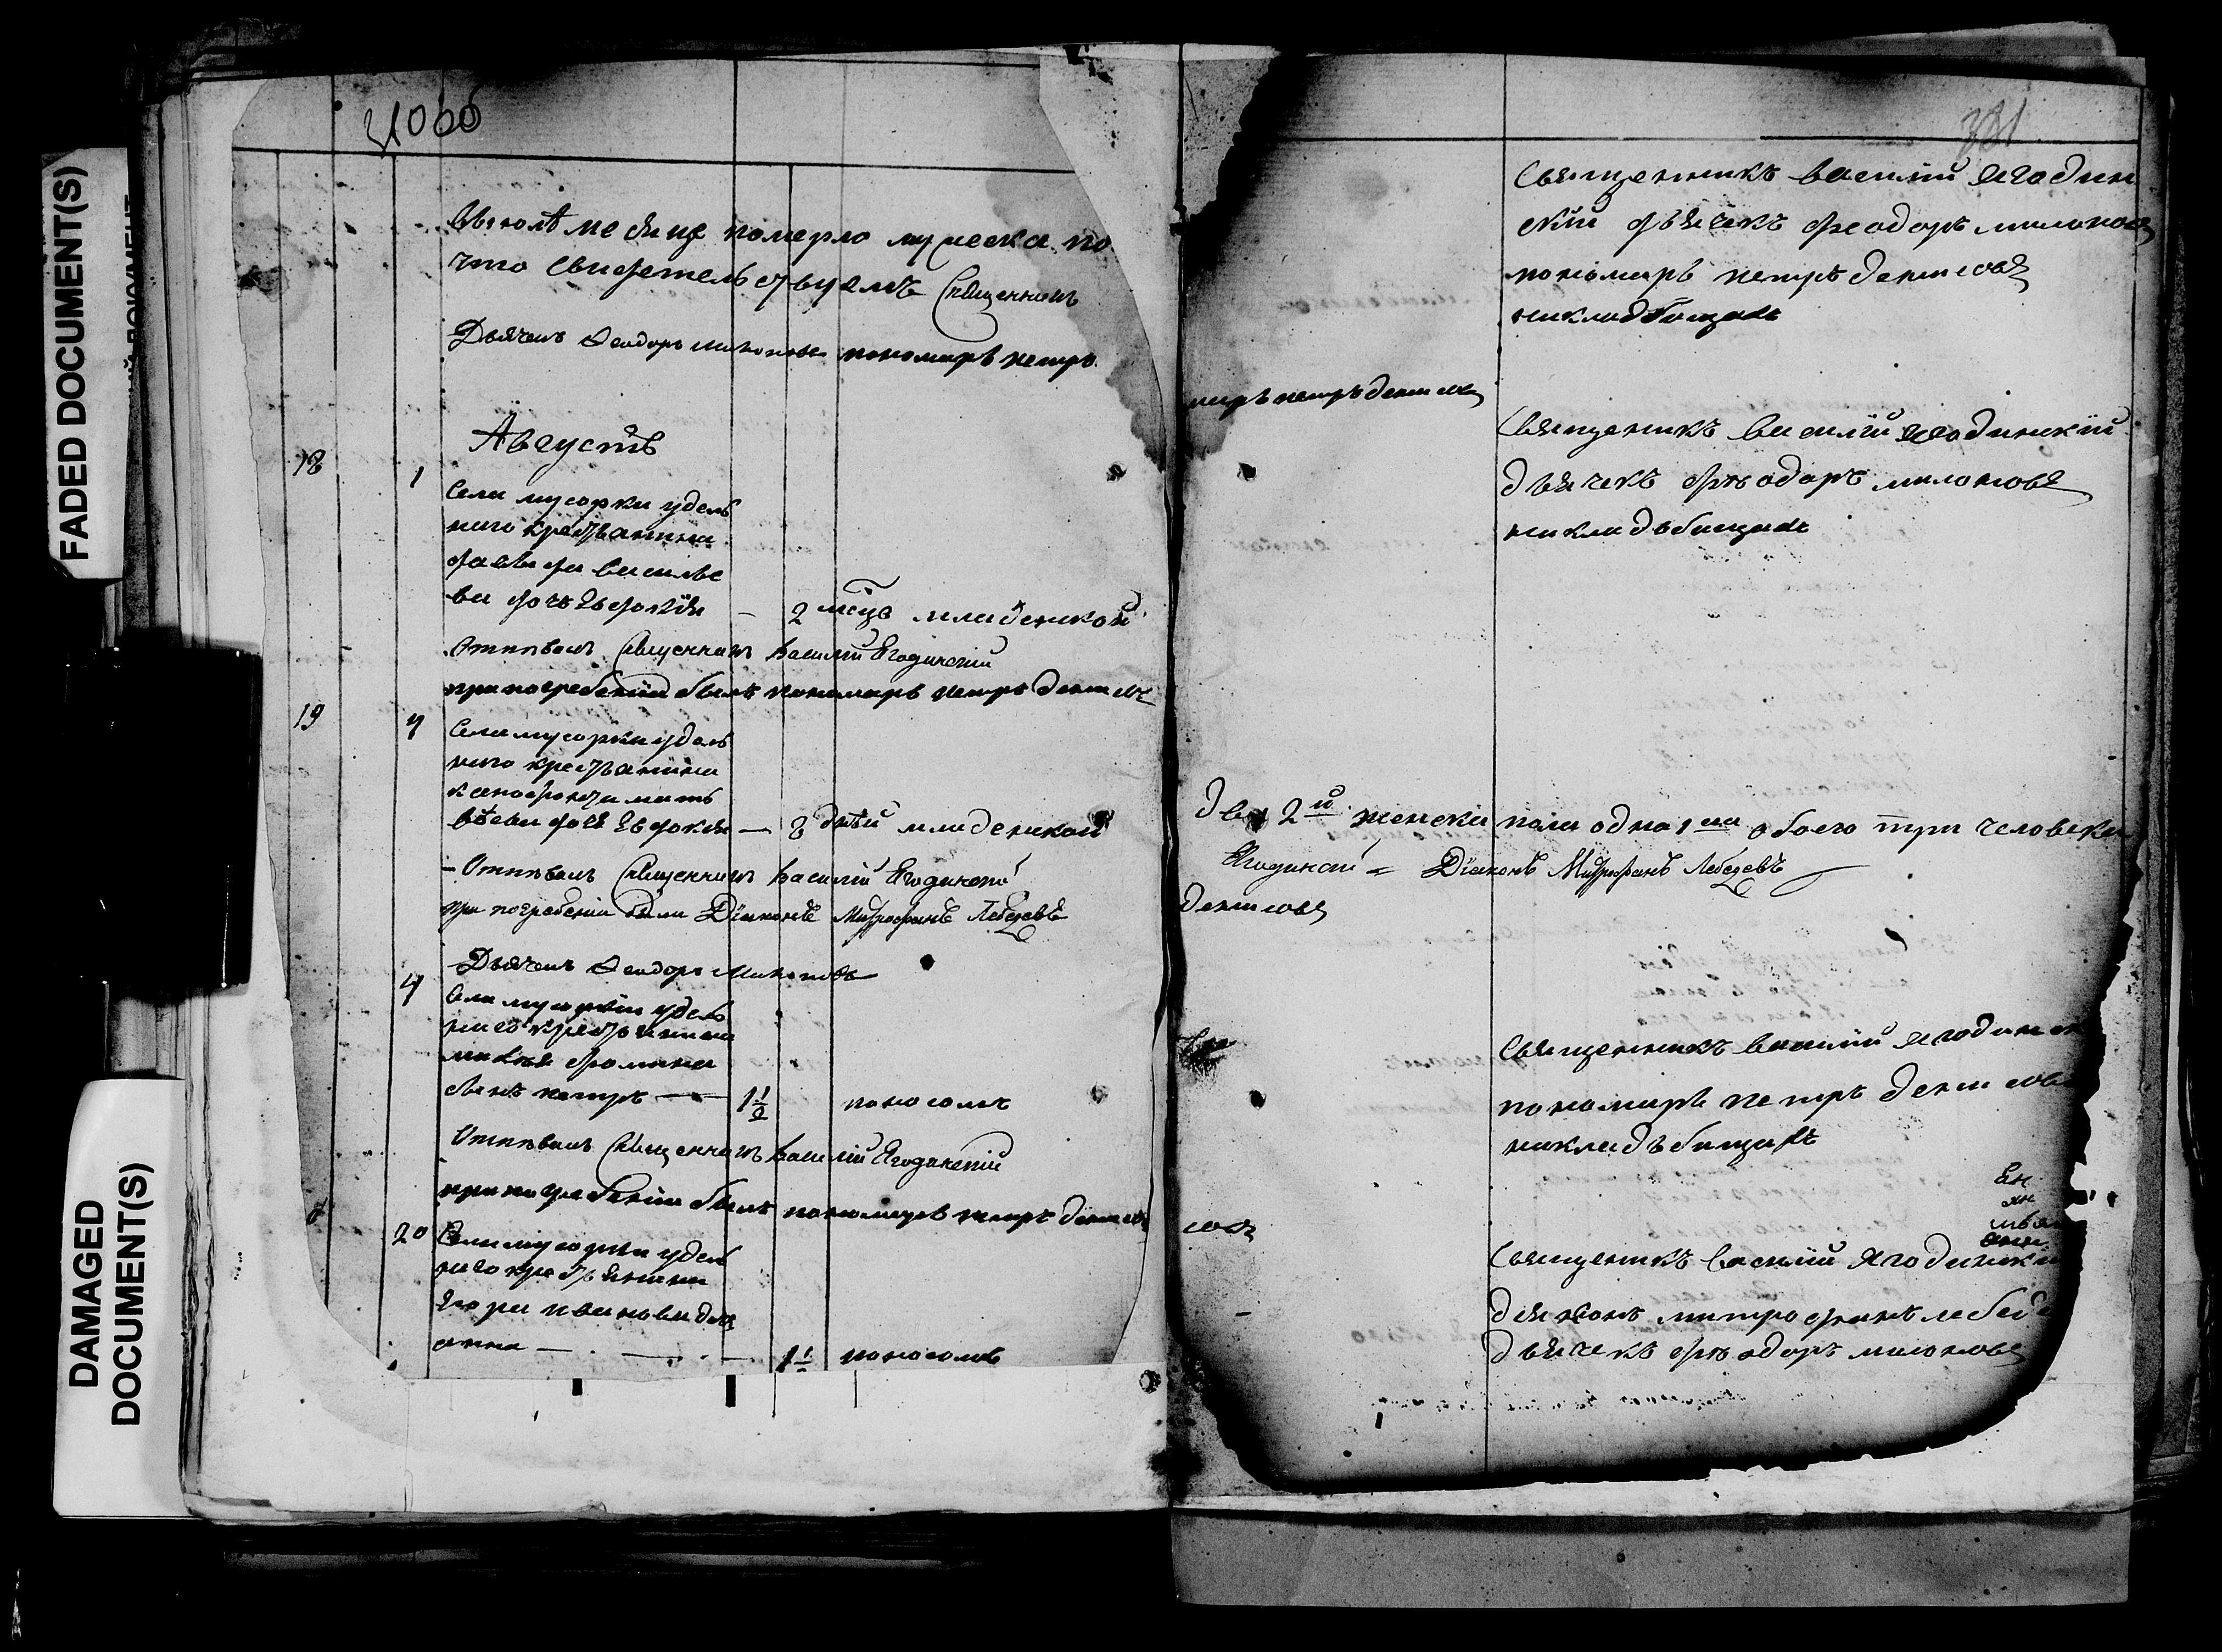 FADED DOCUMENT(S)
DAMAGED
DOCUMENT(S)
31об
Въ июлѣ месяце померло мужеска по
что свидетельствуемъ Священникъ
Дьячекъ Ѳеодоръ Милоновъ пономарь петръ
Августъ
18 1
Села мусорки удель
наго крестьянина
давыда василье
ва дочь Евдокія — 2 мсцъ младенской
Отпѣвалъ Священникъ Василій Ягодинскій
при погребеніи былъ пономарь петръ денисов
19 4
Села мусорки удель
наго крестьянина
ксенофонта матъ
вѣева дочь Евдокия — 8 дней младенской
Отпѣвалъ Священникъ Василій Ягодинской
при погребеніи были Діаконъ Митрофанъ Лебедевъ
Дьячекъ Ѳеодоръ Милоновъ
4
Села мусорки удель
наго крестьянина
фомина
сынъ петръ — 1½ поносомъ
Отпѣвалъ Священникъ Василій Ягодинскій
при погребеніи былъ пономарь петръ денисов
20
Села мусорки удель
наго крестьянина
Егора иванова дочь
анна — 1½ поносомъ
381
Священникъ василій ягодин
скій дьячекъ феодоръ милонов
пономарь петръ денисовъ
накладбищахъ
марь петръ денисов
Священикъ василій ягодинскій
дьячекъ феодоръ милоновъ
накладъбищахъ
два 2й женска пола одна 1на обоего три человека
Ягодинской = Діаконъ Митрофанъ Лебедевъ
денисовъ
Священникъ василій ягодинск
пономарь петръ денисовъ
накладъбищахъ
совъ
Священикъ василій Ягодинскій
диаконъ митрофанъ лебеде
дьячекъ феодоръ милоновъ